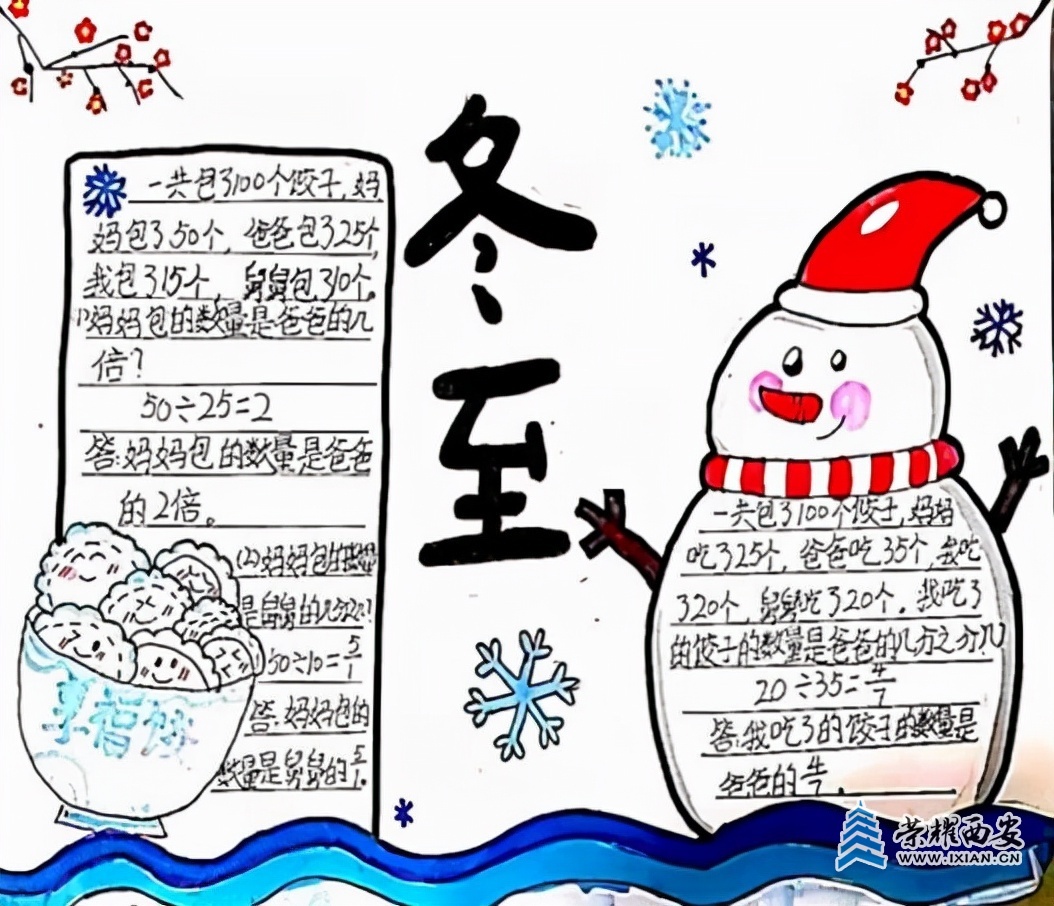 冬至
一共包了100个饺子,妈
妈包了50个,爸爸包了25个,
我包了15个,舅舅包了10个。
(1)妈妈包的数量是爸爸的几
倍?
50÷25=2
答:妈妈包的数量是爸爸
的2倍。
(2)妈妈包的数量
是舅舅的几分之几?
50÷10=5/1
答:妈妈包的
数量是舅舅的5/1.
幸福
一共包了100个饺子,妈妈
吃了25个,爸爸吃35个,我吃
了20个,舅舅吃了20个。我吃了
的饺子的数量是爸爸的几分之分几
20÷35=4/7
答:我吃了的饺子的数量是
爸爸的4/7.
荣耀西安
WWW.IXIAN.CN